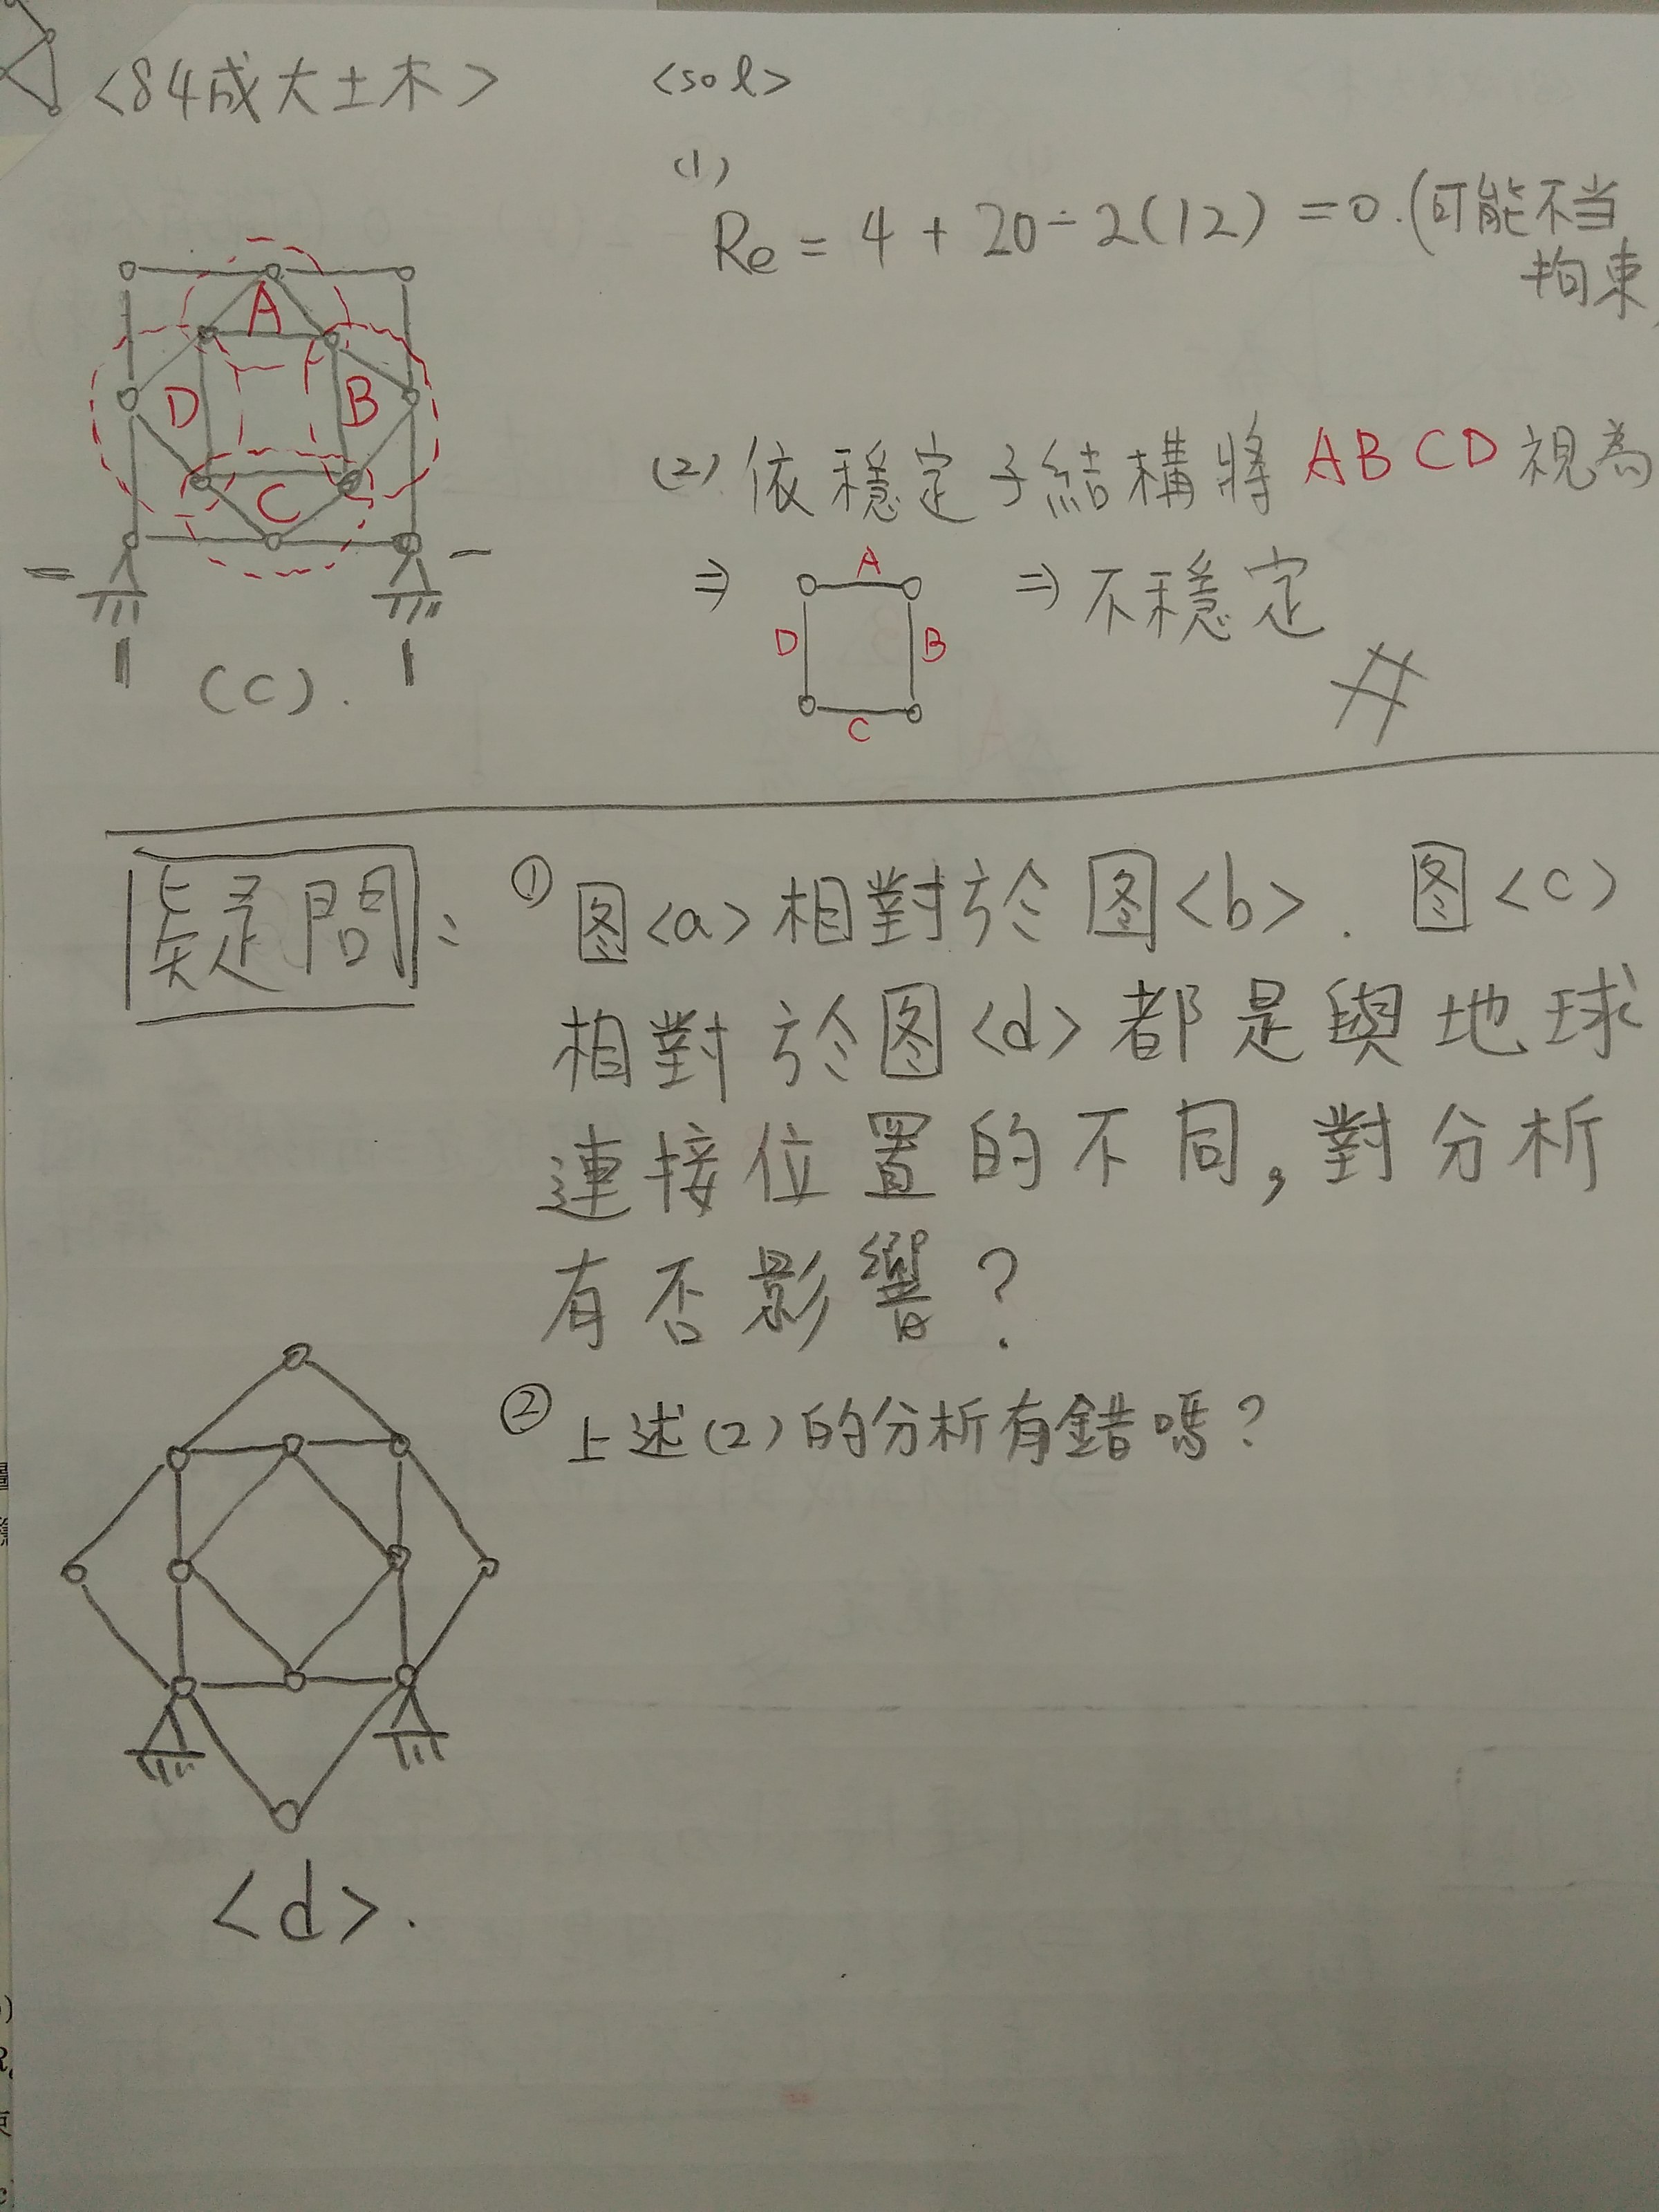 <84成大土木>
<sol>
(1)
Re = 4 + 20 - 2(12) = 0.(可能不当
拘束
A
D
B
C
(2) 依穩定子結構將 ABCD 視為
⇒
A
D
B
C
⇒ 不穩定
(C).
疑問:
① 图<a>相對於图<b>. 图<c>
相對於图<d>都是與地球
連接位置的不同,對分析
有否影響?
② 上述(2)的分析有錯嗎?
<d>.